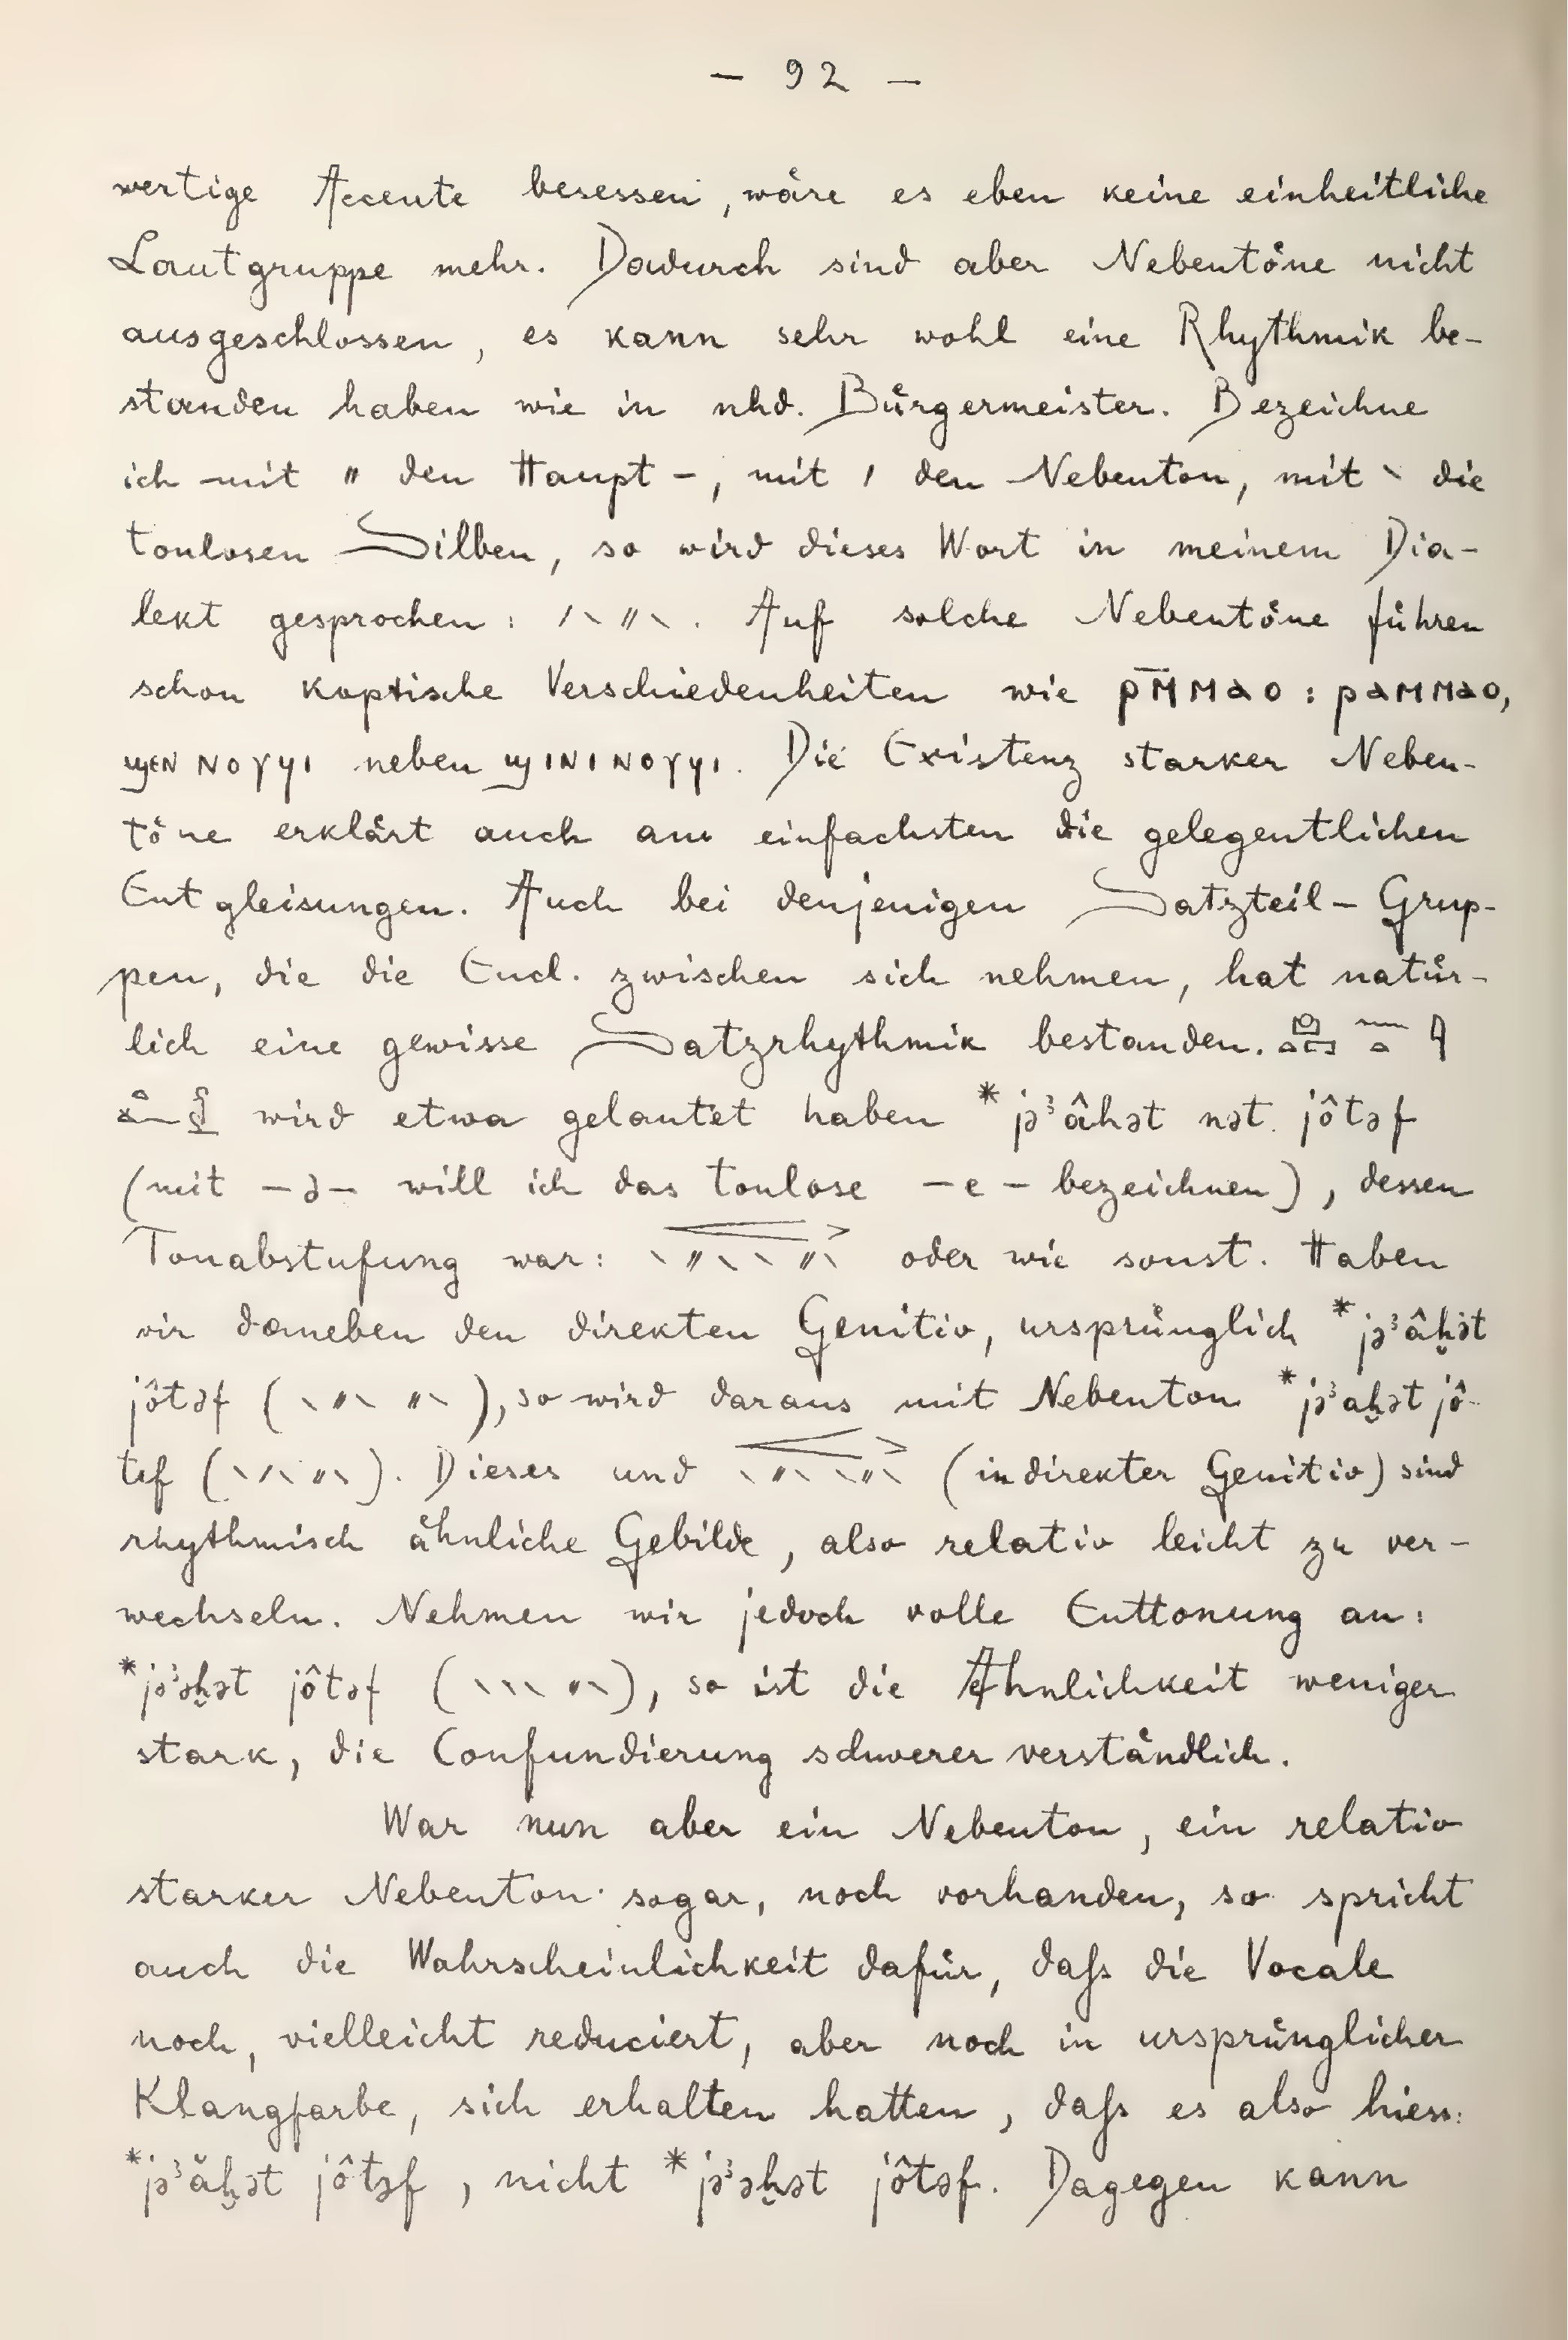 — 92 —
wertige Accente besessen, wäre es eben keine einheitliche
Lautgruppe mehr. Dadurch sind aber Nebentöne nicht
ausgeschlossen, es kann sehr wohl eine Rhythmik be-
standen haben wie in nhd. Bürgermeister. Bezeichne
ich mit " den Haupt-, mit ′ den Nebenton, mit ˋ die
tonlosen Silben, so wird dieses Wort in meinem Dia-
lekt gesprochen: ′ ˋ " ˋ. Auf solche Nebentöne führen
schon koptische Verschiedenheiten wie ⲣⲙ̄ⲙⲁⲟ : ⲣⲁⲙⲙⲁⲟ,
ϣⲉⲛⲛⲟⲩϥⲓ neben ϣⲓⲛⲓⲛⲟⲩϥⲓ. Die Existenz starker Neben-
töne erklärt auch am einfachsten die gelegentlichen
Entgleisungen. Auch bei denjenigen Satzteil-Grup-
pen, die die Encl. zwischen sich nehmen, hat natür-
lich eine gewisse Satzrhythmik bestanden.
wird etwa gelautet haben *jə³âhət nət jôtəf
(mit -ə- will ich das tonlose -e- bezeichnen), dessen
Tonabstufung war: ˋ " ˋ ˋ " ˋ oder wie sonst. Haben
wir daneben den direkten Genitiv, ursprünglich *jə³âḫət
jôtəf (ˋ " ˋ " ˋ), so wird daraus mit Nebenton *jə³aḫət jô-
tef (ˋ ′ ˋ " ˋ). Dieses und ˋ " ˋ ˋ " ˋ (indirekter Genitiv) sind
rhythmisch ähnliche Gebilde, also relativ leicht zu ver-
wechseln. Nehmen wir jedoch volle Enttonung an:
*jə³əḫət jôtəf (ˋ ˋ ˋ " ˋ), so ist die Ähnlichkeit weniger
stark, die Confundierung schwerer verständlich.
War nun aber ein Nebenton, ein relativ
starker Nebenton sogar, noch vorhanden, so spricht
auch die Wahrscheinlichkeit dafür, daß die Vocale
noch, vielleicht reduciert, aber noch in ursprünglicher
Klangfarbe, sich erhalten hatten, daß es also hiess:
*jə³ăḫət jôtəf, nicht *jə³əḫət jôtəf. Dagegen kann